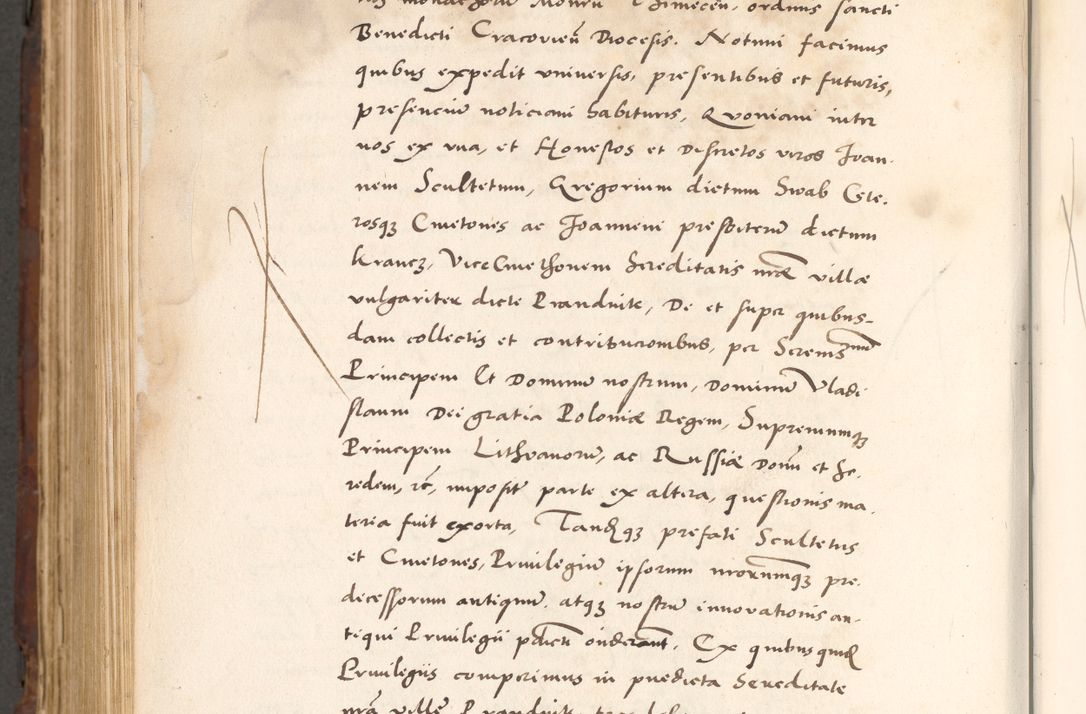 ordinis sancti
Benedicti Cracovieñ Diocesis. Notum facimus
quibus expedit universis, presentibus et futuris,
presenciũ noticiam habituris, Quoniam inter
nos ex una, et Honestos et Discretos viros Ioan-
nem Scultetum, Gregorium dictum Swab Cete-
rosqз Cmetones ac Joannem presbiterũ dictum
Krancz, ViceCmethonem hereditatis nr̃æ villæ
vulgariter dicte Prandnik, De et super quibus-
dam collectis et contribucionibus, per Sereniss mũ
Principem Et Dominũ nostrum, Dominũ Vladi-
slaum Dei gratia Poloniæ Regem, Supremumqз
Principem Lithvanorũ, ac Russiæ Domĩ et he-
redem, rc̃, imposit̃ parte ex altera, questionis ma-
teria fuit exorta, Tandẽqз prefati Scultetus
et Cmetones, Privilegiũ ipsorum nrorumqз pre-
decessorum antiquũ, atqз nostrũ innovationis an-
tiqui Privilegii p̃dicti Ex quibusquid̃
Privilegiis comperimus in predicta hereditate
nr̃a villẽ Prandnik